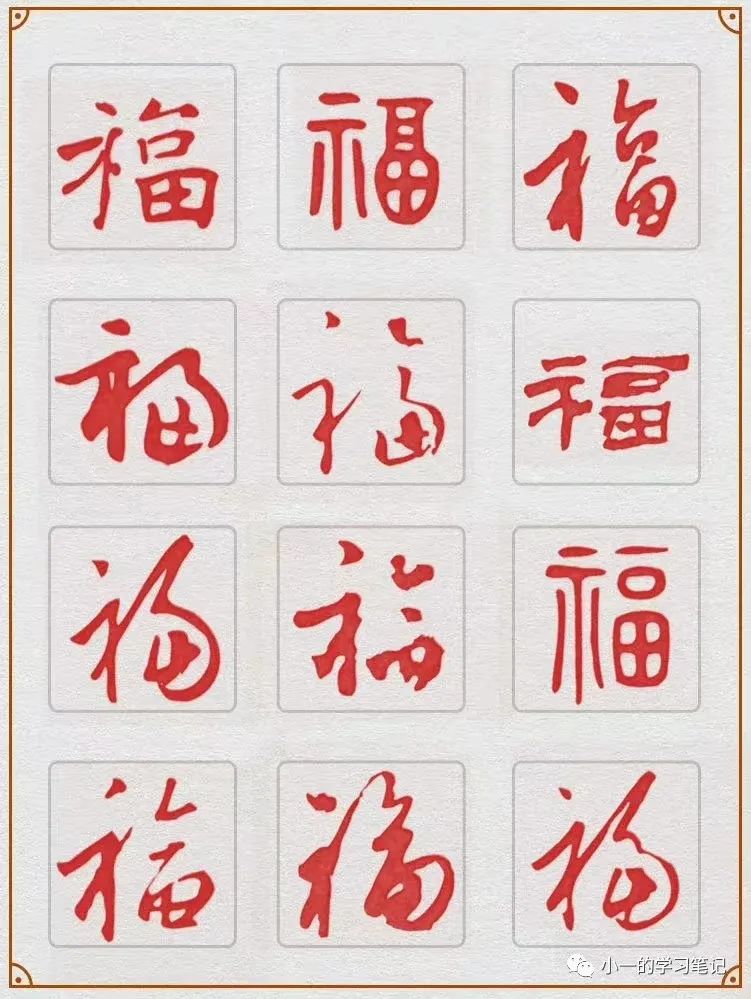 福 福 福
福 福 福
福 福 福
福 福 福
小一的学习笔记